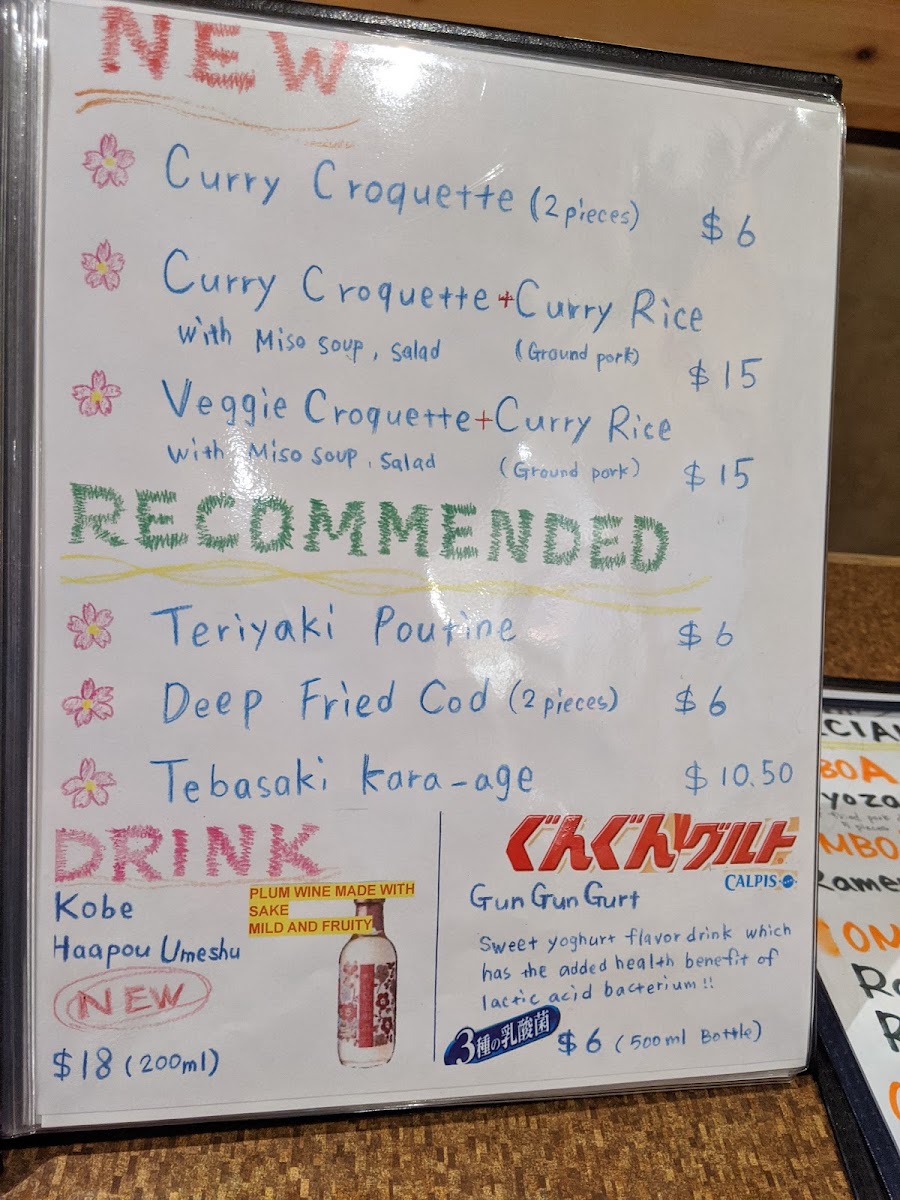 NEW
Curry Croquette (2 pieces) $6
Curry Croquette + Curry Rice
with Miso soup, Salad (Ground pork) $15
Veggie Croquette + Curry Rice
with Miso soup, Salad (Ground pork) $15
RECOMMENDED
Teriyaki Poutine $6
Deep Fried Cod (2 pieces) $6
Tebasaki Kara-age $10.50
DRINK
Kobe
Haapou Umeshu
NEW
$18 (200ml)
PLUM WINE MADE WITH
SAKE
MILD AND FRUITY
ぐんぐんグルト
CALPIS
Gun Gun Gurt
Sweet yoghurt flavor drink which
has the added health benefit of
lactic acid bacterium!!
3種の乳酸菌
$6 (500ml Bottle)